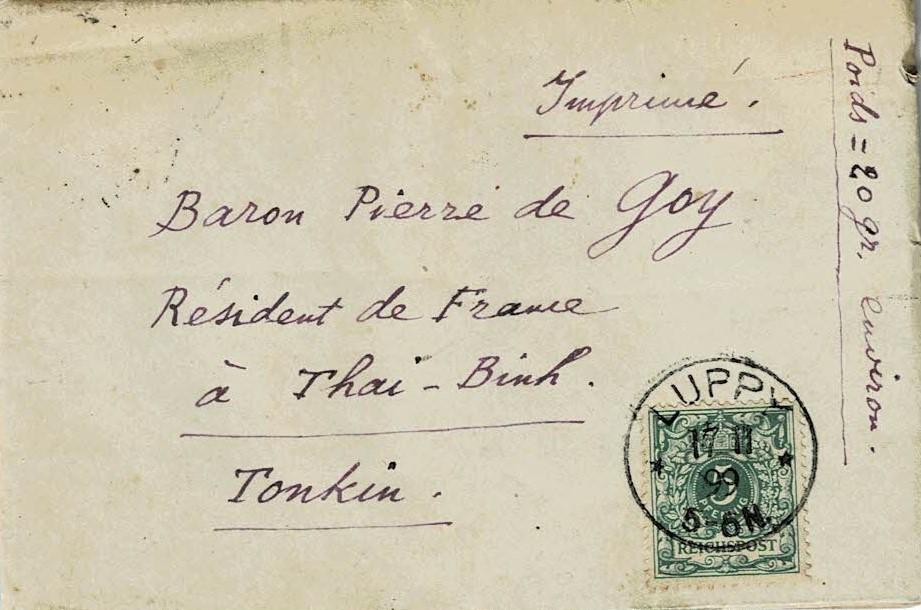 Imprimé.
Poids = 20 gr. environ.
Baron Pierre de Goy
Résident de France
à Thai-Binh.
Tonkin.
LUPPY
17 11
99
5-6N.
5
REICHSPOST